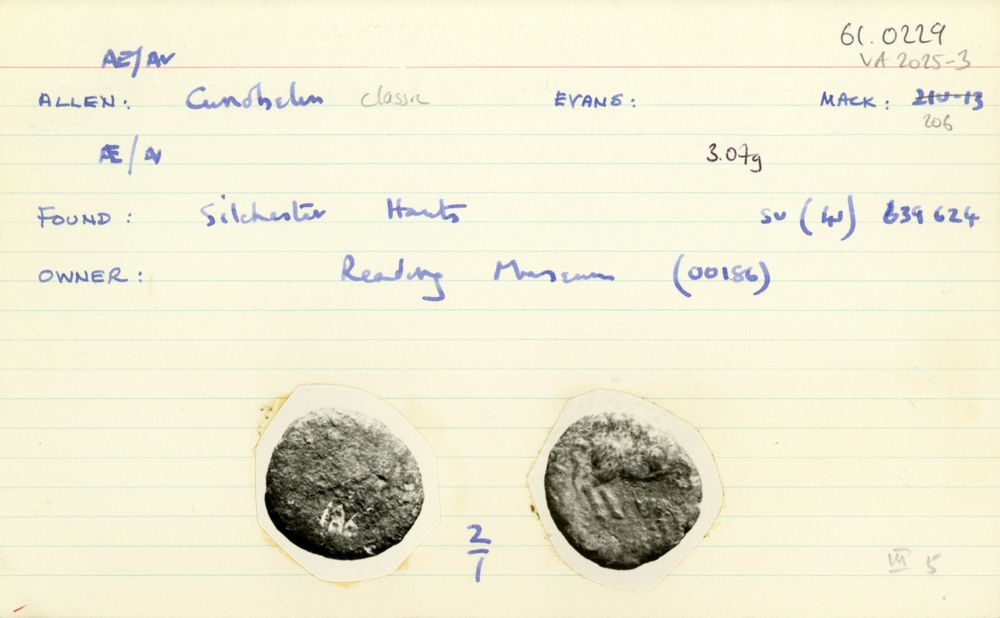 61.0229
AE/AV VA 2025-3
ALLEN: Cunobelin Classic EVANS: MACK: 210-13
206
Æ/AV 3.07g
FOUND: Silchester Hants SU (41) 639 624
OWNER: Reading Museum (00186)
186
2/1
VIII 5